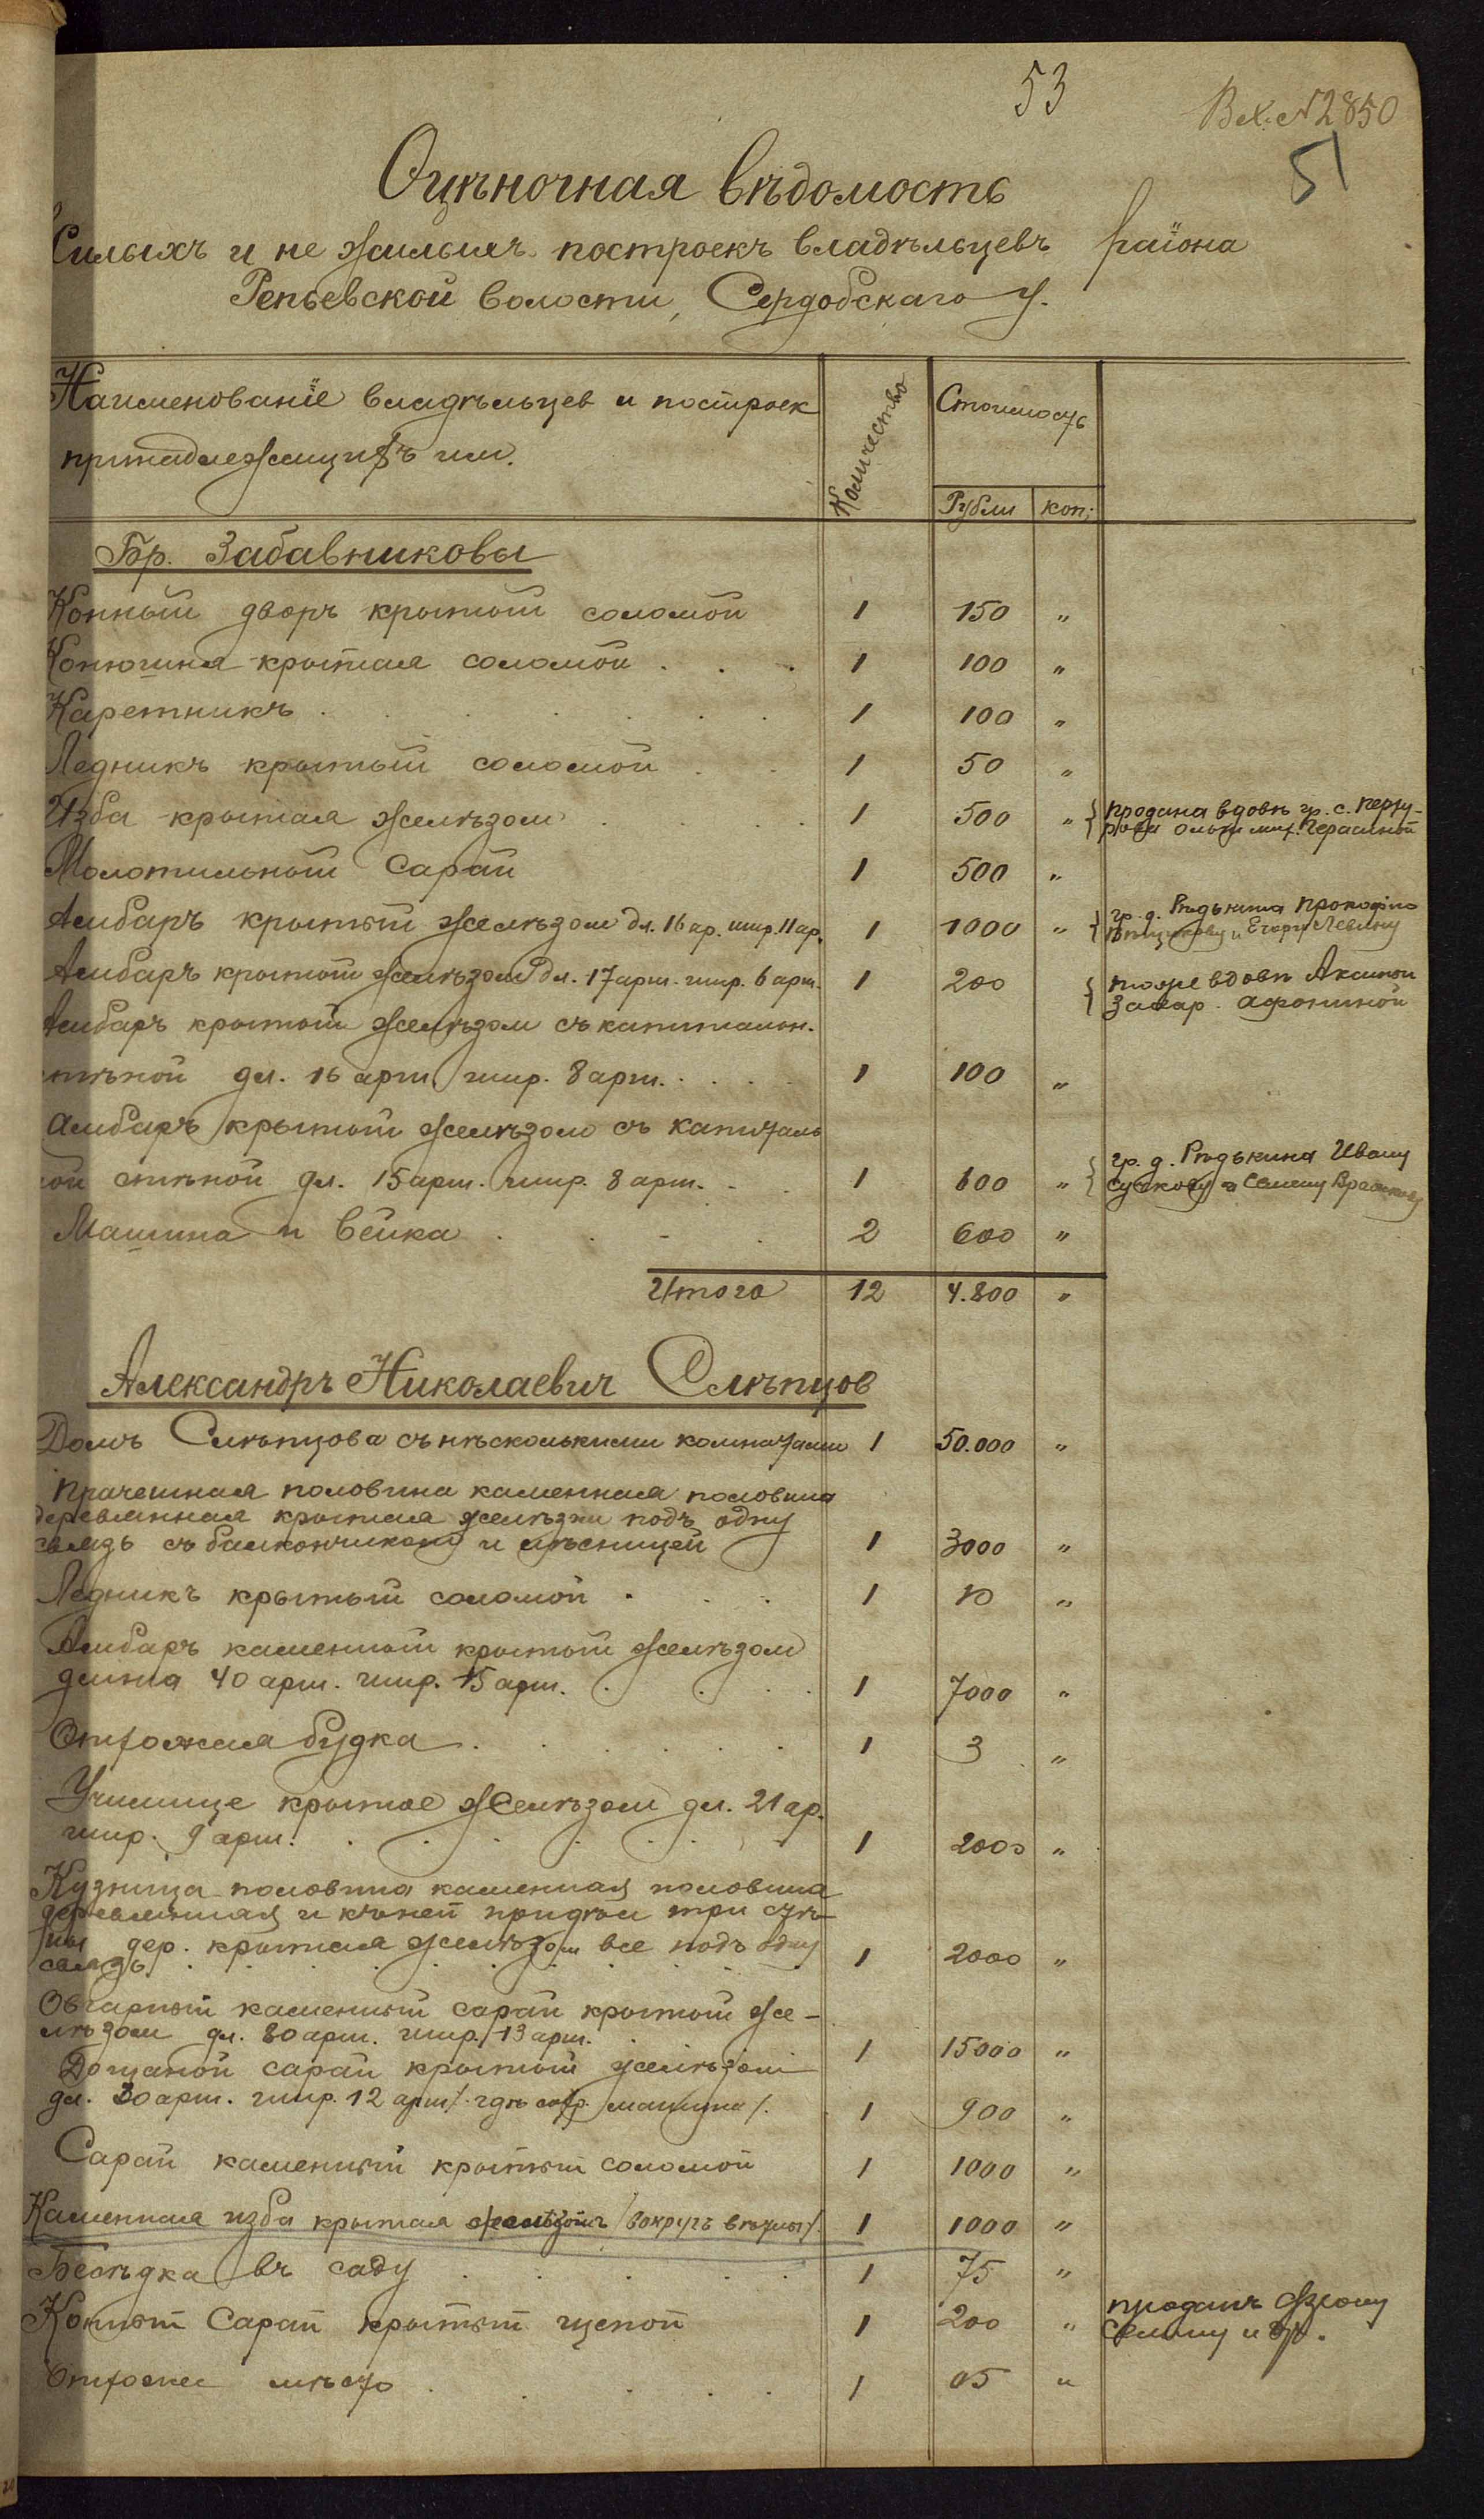 53
Вх. №2850
51
Оцѣночная вѣдомость
жилыхъ и не жилыхъ построекъ владѣльцевъ района
Репьевской волости, Сердобскаго у.
Наименованіе владѣльцев и построек
принадлежащихъ им.
Количество
Стоимость
Рубли коп:
Бр. Забавниковы
Конный дворъ крытый соломой 1 150 „
Конюшня крытая соломой . . . 1 100 „
Каретникъ . . . . . . 1 100 „
Ледникъ крытый соломой . . 1 50 „
Изба крытая желѣзом . . . 1 500 „ продана вдовѣ гр. с.
Ольги Мих.
Молотильный Сарай 1 500 „
Амбаръ крытый желѣзом дл. 16 ар. шир. 11 ар. 1 1000 „ гр. д. Рѣдькина Прокофію
и Егору Левину
Амбаръ крытый желѣзом дл. 17 арш. шир. 6 арш. 1 200 тоже вдовѣ Аксиньи
Захар. Афониной
Амбаръ крытый желѣзом съ капитальн.
стѣной дл. 16 арш. шир. 8 арш. . . . . 1 100 „
Амбаръ крытый желѣзом съ капиталь
ной стѣной дл. 15 арш. шир. 8 арш. . . 1 600 „ гр. д. Рѣдькина Ивану
Сучкову и Семену
Машина и вейка . . . . 2 600 „
Итого 12 4.800 „
Александръ Николаевич Слѣпцов
Домъ Слѣпцова съ нѣсколькими комнатами 1 50.000 „
Прачешная половина каменная половина
деревянная крытая желѣзом подъ одну
связь съ балкончиком и лѣсницей 1 3000 „
Ледникъ крытый соломой . . . 1 10 „
Амбаръ каменный крытый желѣзом
длина 40 арш. шир. 15 арш. . . . . 1 7000 „
Отхожая будка . . . . . . 1 3 „
Училище крытое желѣзом дл. 21 ар.
шир. 9 арш. . . . . . . . 1 2000 „
Кузница половина каменная половина
деревянная и къ ней придѣл три стѣ-
ны дер. крытая желѣзом все подъ одну
связь . . . . . . . . 1 2000 „
Овчарный каменный сарай крытый же-
лѣзом дл. 80 арш. шир. 13 арш. . 1 15000 „
Дощаной сарай крытый желѣзом
дл. 30 арш. шир. 12 арш /. гдѣ сохр. машина /. 1 900 „
Сарай каменный крытый соломой 1 1000 „
Каменная изба крытая желѣзомъ /вокругъ 1 1000 „
Бесѣдка въ саду . . . . . . 1 75 „
Конный Сарай крытый щепой 1 200 „ проданъ
Селину и др.
Отхожее мѣсто . . . . . 1 05 „